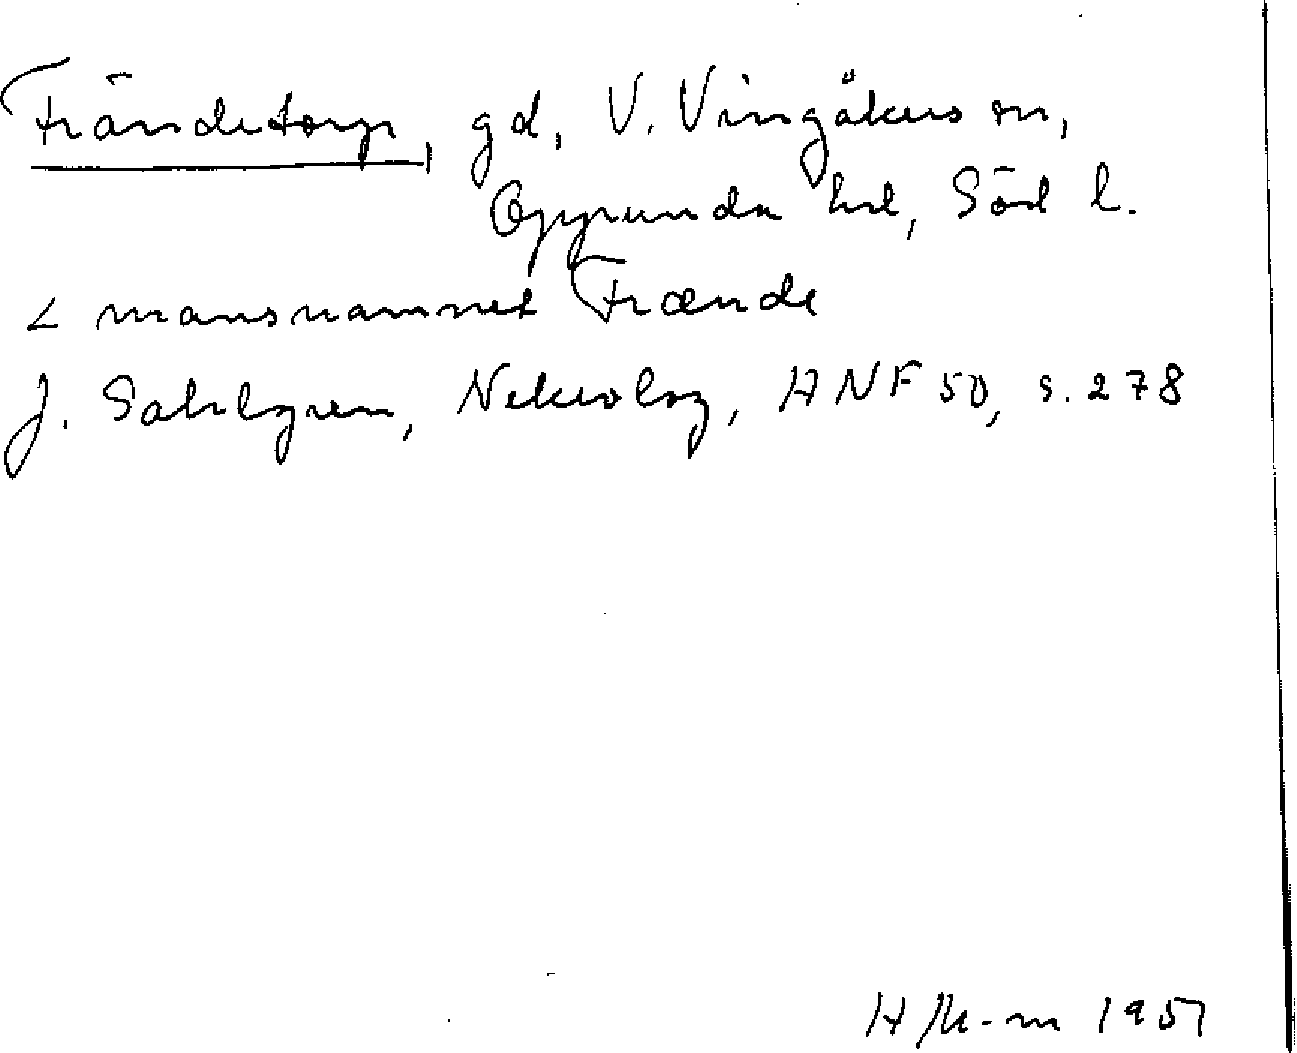 Frändetorp, gd, V. Vingåkers sn,
Oppunda hd, Söd l.
< mansnamnet Frænde
J. Sahlgren, Nekrolog, ANF 50, s. 278
1951